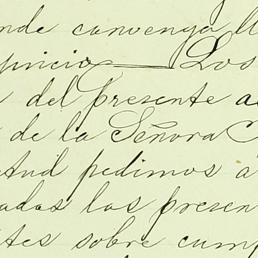 nde convenga ll
juicio — Los
del presente a
de la Señora C
tud pedimos a
adas los presen
tes sobre cump